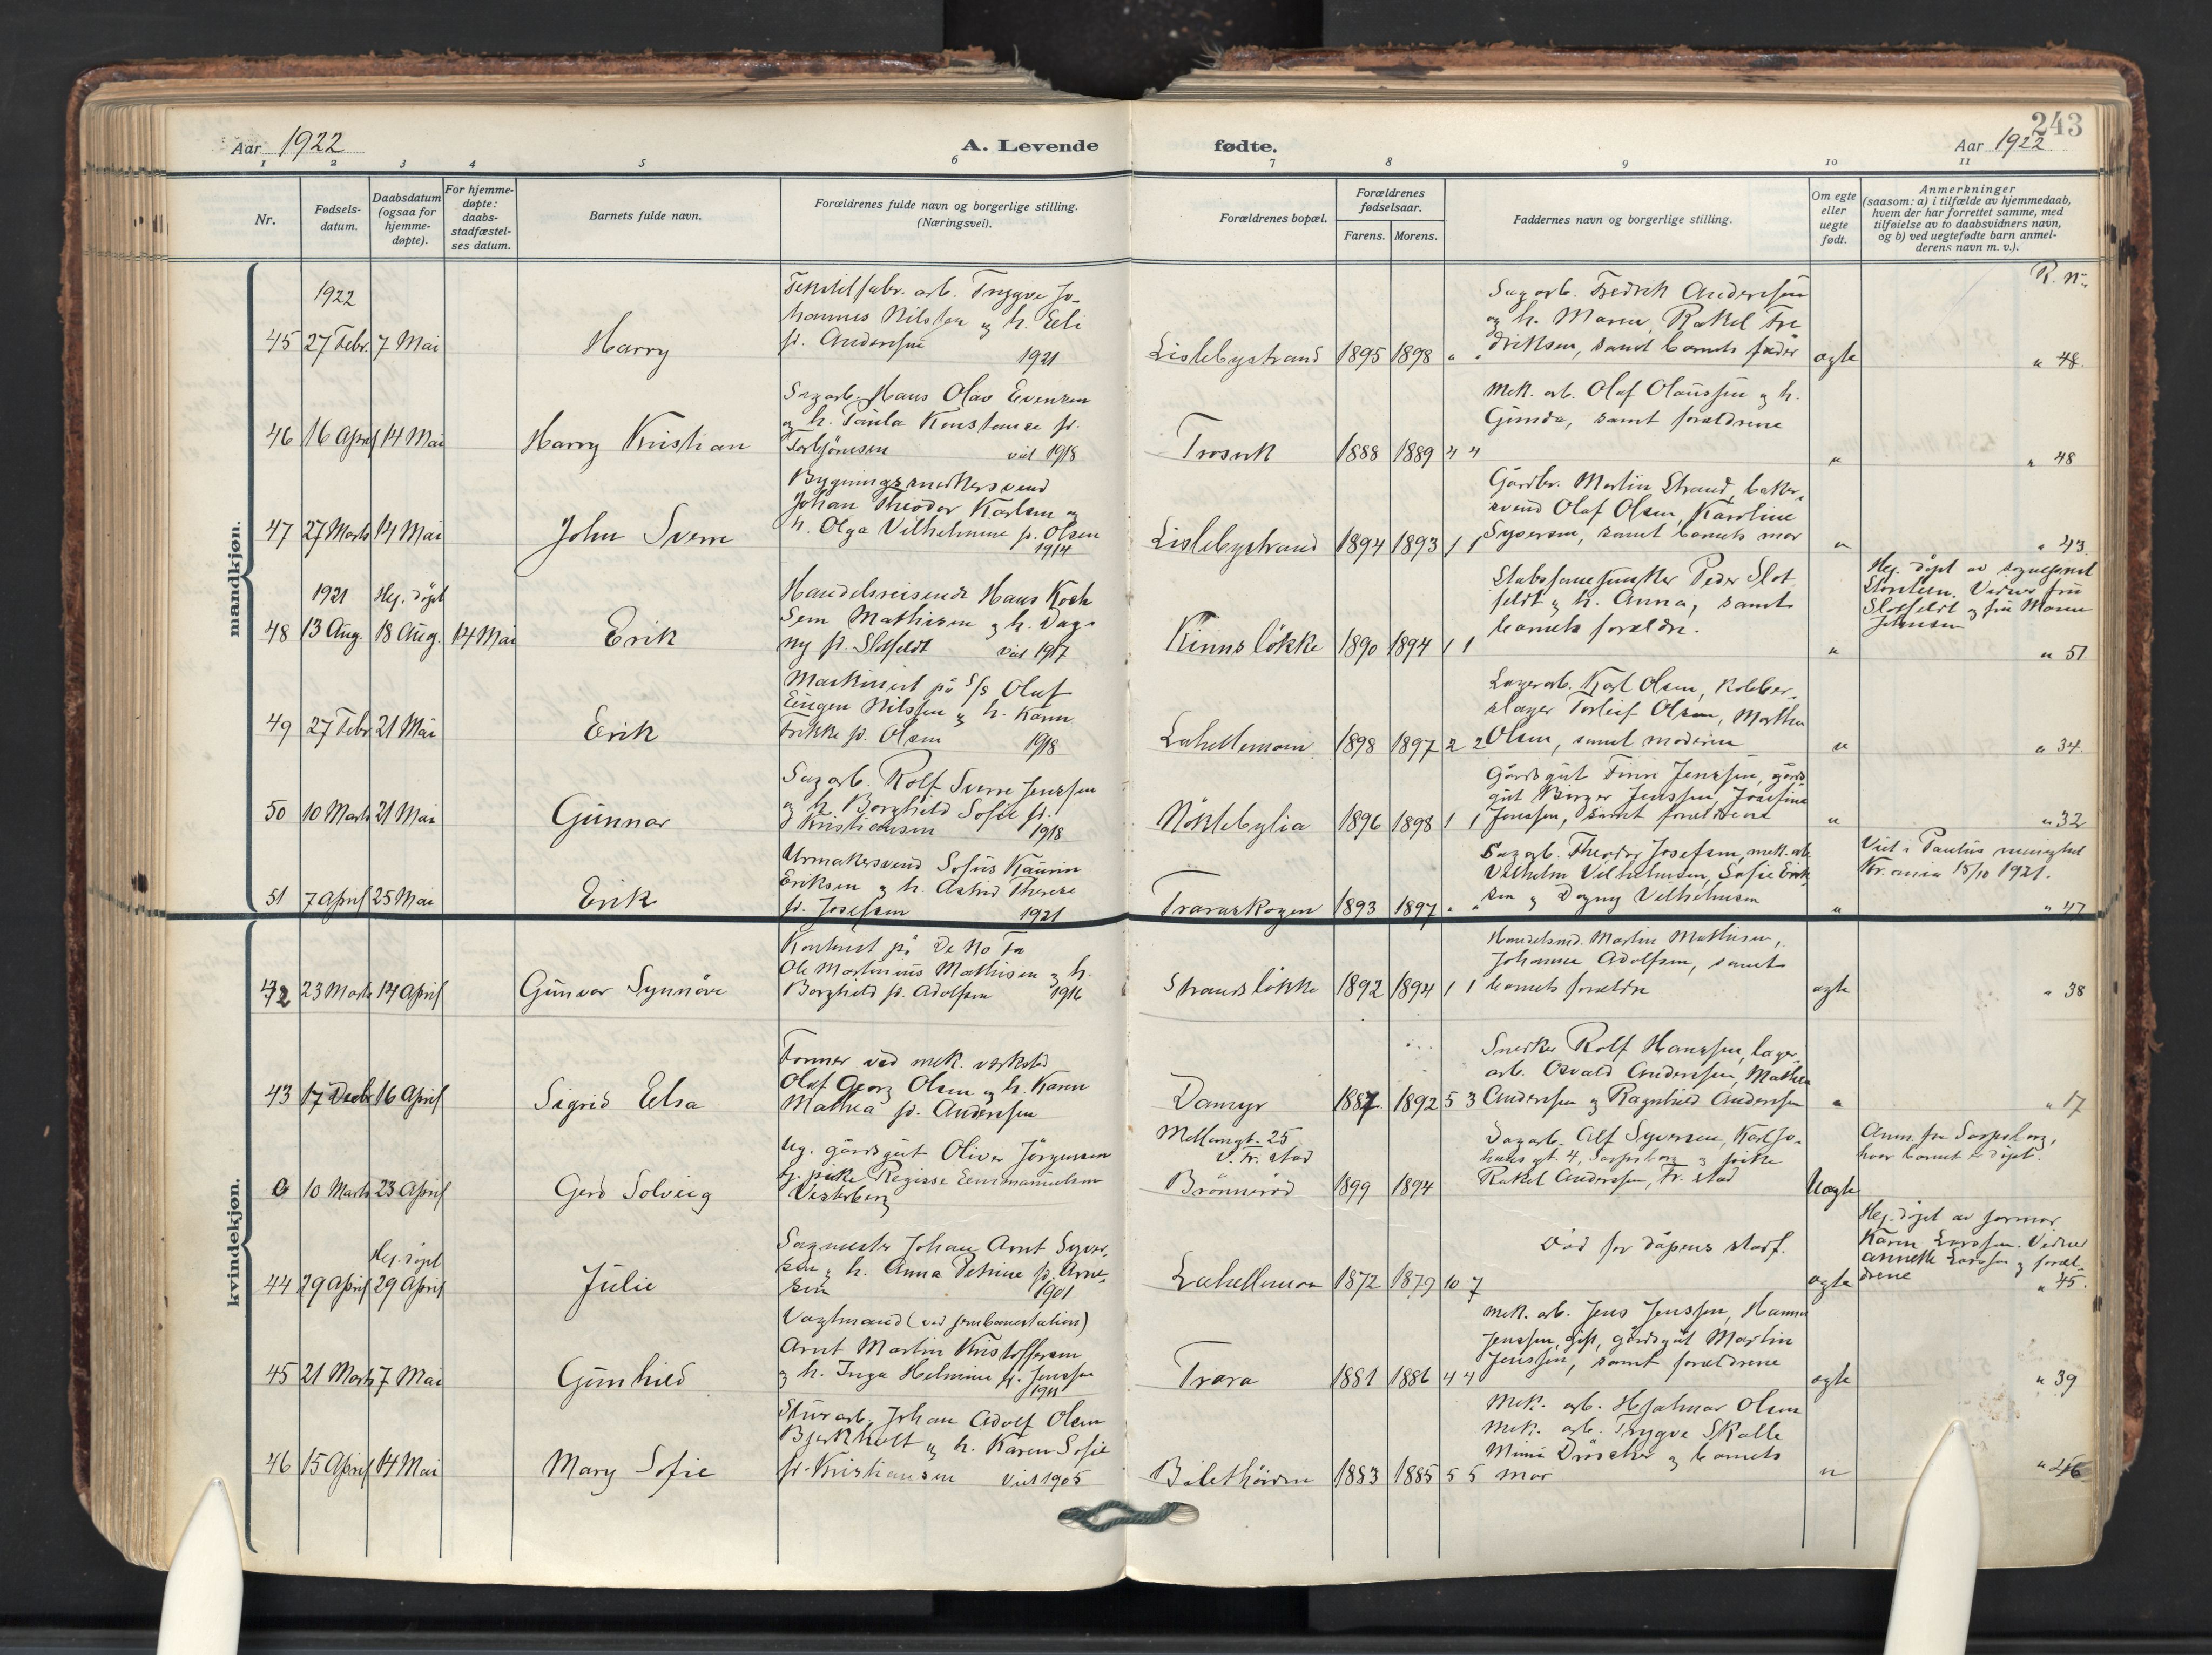 243
Aar 1922
A. Levende
fødte.
Aar 1922
1 2 3 4 5 6 7 8 9 10 11
Nr.
Fødsels-
datum.
Daabsdatum
(ogsaa for
hjemme-
døpte).
For hjemme-
døpte:
daabs-
stadfæstel-
ses datum.
Barnets fulde navn.
Forældrenes fulde navn og borgerlige stilling.
(Næringsvei).
Forældrenes bopæl.
Forældrenes
fødselsaar.
Farens. Morens.
Faddernes navn og borgerlige stilling.
Om egte
eller
uegte
født.
Anmerkninger
(saasom: a) i tilfælde av hjemmedaab,
hvem der har forrettet samme, med
tilføielse av to daabsvidners navn,
og b) ved uegtefødte barn anmel-
derens navn m. v.).
mandkjøn.
1922
R. Nr.
45 27 Febr. 7 Mai
Harry
Tekstilfabr. arb. Trygve Jo-
hannes Nilssen og h. Eli
f. Anderssen
1921
Lislebystrand 1895 1898 " "
Sagarb. Fredrik Anderssen
og h. Maren, Rakel Fre
driksen, samt barnets fader
egte
" 48.
46 16 April 14 Mai
Harry Kristian
Sagarb. Hans Olav Evensen
og h. Paula Konstanse f.
Torbjörnsen viet 1918
Trosvik 1888 1889 4 4
Mek. arb. Olaf Olaussen og h.
Gunda, samt forældrene
"
" 48
47 27 Marts 14 Mai
John Sverre
Bygningssnedkersvend
Johan Theodor Karlsen og
h. Olga Vilhelmine f. Olsen
1914
Lislebystrand 1894 1893 1 1
Gårdbr. Martin Strand, baker-
svend Olaf Olsen, Karoline
Syversen, samt barnets mor
"
" 43
1921 Hj. döpt
48 13 Aug. 18 Aug. 14 Mai
Erik
Handelsreisende Hans Koch
Sem Mathisen og h. Dag-
ny f. Slotfeldt viet 1917
Kinnslökke 1890 1894 1 1
Peder Slot
feldt og h. Anna, samt
barnets forældre.
"
Hj. döpt av sogneprest
Vidner fru
Slotfeldt og fru
Johnsen
" 51
49 27 Febr. 21 Mai
Erik
Maskinist på S/S Oluf
Eugen Nilssen og h. Karen
Frikke f. Olsen 1918
Lahellemoen 1898 1897 2 2
Lagerarb. Karl Olsen, kobber-
slager Torleif Olsen, Martha
Olsen, samt moderen
"
" 34
50 10 Marts 21 Mai
Gunnar
Sagarb. Rolf Sverre Jenssen
og h. Borghild Sofie f.
Kristiansen 1918
Nöklebylia 1896 1898 1 1
Gårdsgut Finn Jenssen, gårds
gut Birger Jenssen, Josefine
Jenssen, samt forældrene
"
" 32
51 7 April 25 Mai
Erik
Urmakersvend Sofus Kaurin
Eriksen og h. Astrid Therese
f. Josefsen 1921
Traraskogen 1893 1897 " "
Sagarb. Theodor Josefsen, mek. arb.
Vilhelm Vilhelmsen, Sofie Erik
sen og Dagny Vilhelmsen
"
Viet i Paulus menighet
Kr.ania 15/10 1921.
" 47
kvindekjøn.
42 23 Marts 14 April
Gunvor Synnöve
Kontorist på De No Fa
Ole Martinius Mathisen og h.
Borghild f. Adolfsen 1916
Strandslökke 1892 1894 1 1
Handelsmd. Martin Mathisen,
Johanne Adolfsen, samt
barnets forældre
egte
" 38
43 17 Decbr 16 April
Sigrid Elsa
Former ved mek. verksted
Olaf Georg Olsen og h. Karen
Mathea f. Anderssen
Damyr 1887 1892 5 3
Snedker Rolf Hanssen, lager-
arb. Osvald Anderssen, Mathea
Anderssen og Ragnhild Anderssen
"
" 17
0 10 Marts 23 April
Gerd Solveig
Ug. gårdsgut Oliver Jörgensen
tj. pike Regisse Emmanuelsen
Vesterberg
Mellomgt. 25
v. Fr. stad
Brönneröd 1899 1894
Dagarb. Alf Syversen, Karl Jo-
hans gt. 4, Sarpsborg og pike
Rakel Anderssen, Fr. stad
Uegte
Anm. fra Sarpsborg,
hvor barnet er döpt.
Hj. döpt
44 29 April 29 April
Julie
Sagmester Johan Arnt Syver-
sen og h. Anna Petrine f. Arne-
sen 1901
Lahellemoen 1872 1879 10 7
Död för dåpens stadf.
egte
Hj. döpt av farmor
Karen Larssen. Vidner
Annette Larssen og foræl-
drene
" 45.
45 21 Marts 7 Mai
Gunhild
Vagtmand (ved jernbanestation)
Arnt Martin Kristoffersen
og h. Inga Helmine f. Jenssen
1911
Trara 1881 1886 4 4
Mek. arb. Jens Jenssen, Hanna
Jenssen, gift, gårdsgut Martin
Jenssen, samt forældrene
egte
" 39
46 15 April 14 Mai
Mary Sofie
Johan Adolf Olsen
Bjerkholt og h. Karen Sofie
f. Kristiansen viet 1905
1883 1885 5 5
Mek. arb. Hjalmar Olsen
Mek. arb. Trygve Skolle
barnets
mor
"
" 46